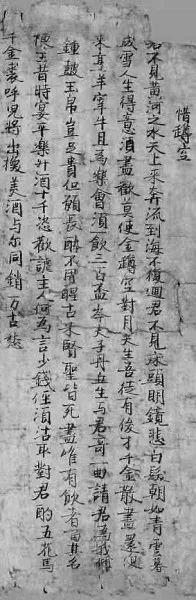 惜罇空
君不見黃河之水天上來奔流到海不復迴君不見床頭明鏡悲白髮朝如青雲暮
成雪人生得意須盡歡莫使金罇空對月天生吾徒有俊才千金散盡還復
來烹羊宰牛且為樂會須一飲三百盃岑夫子丹丘生与君哥一曲請君為我傾
鍾皷玉帛豈足貴但願長醉不用醒古來賢聖皆死盡唯有飲者留其名
陳王昔時宴平樂斗酒十千恣歡謔主人何為言少錢徑須沽取對君酌五花馬
千金裘呼兒將出換美酒与尔同銷万古愁